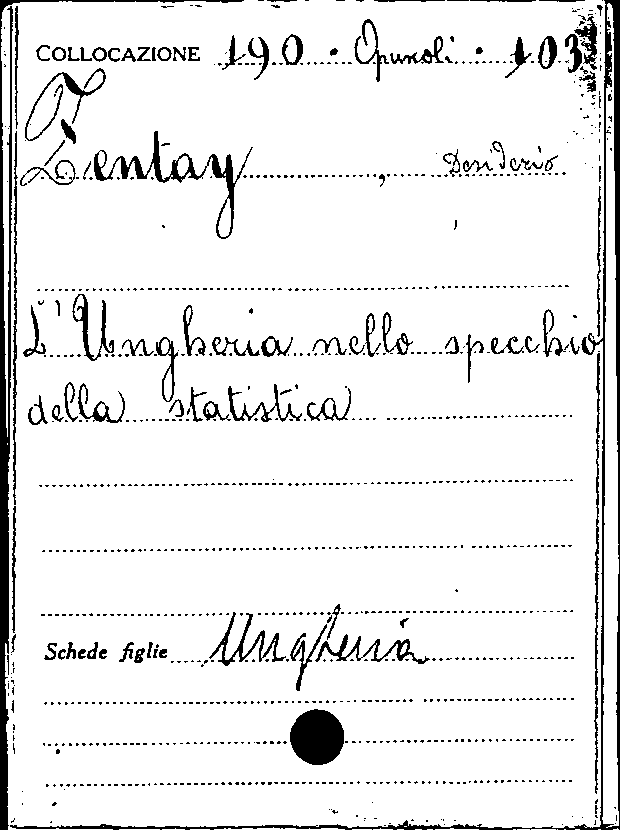 COLLOCAZIONE 190 · Opuscoli · 103
Zentay, Desiderio
L'Ungheria nello specchio
della statistica
Schede figlie Ungheria